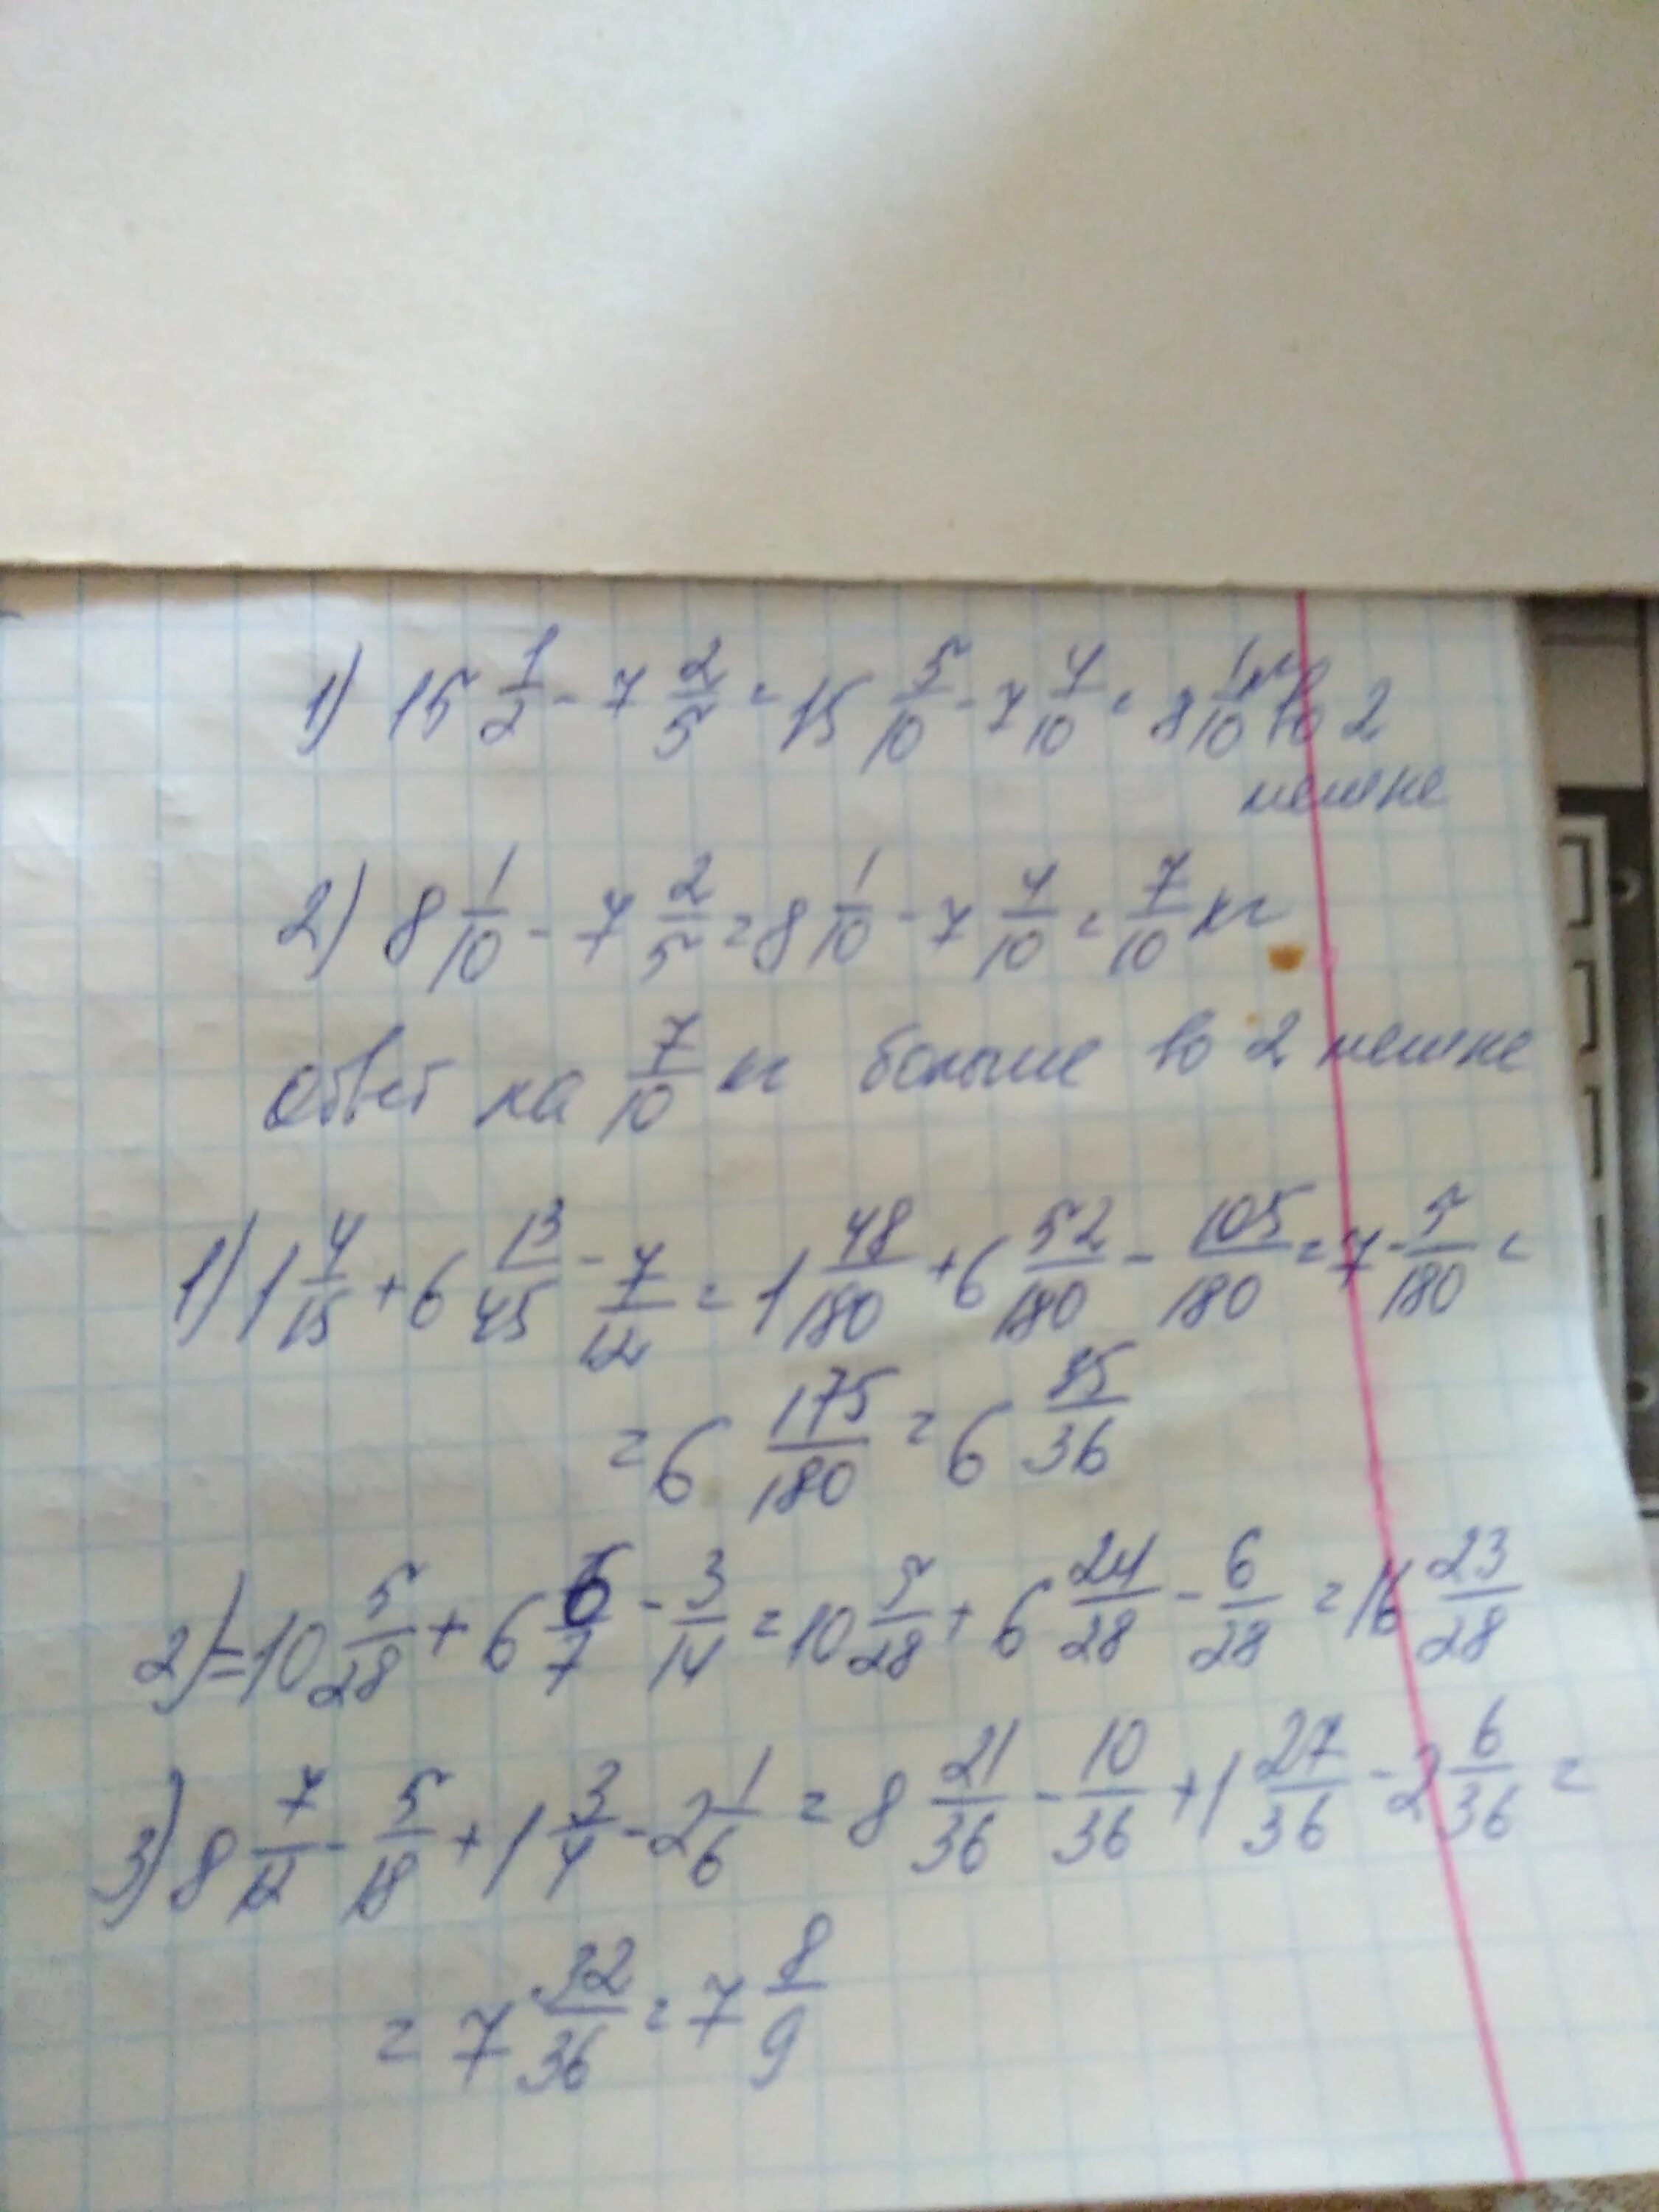 1) 15 1/2 - 7 2/5 = 15 5/10 - 7 4/10 = 8 1/10 кг во 2
мешке
2) 8 1/10 - 7 2/5 = 8 1/10 - 7 4/10 = 7/10 кг
ответ на 7/10 кг больше во 2 мешке
1) 1 4/15 + 6 13/45 - 7/12 = 1 48/180 + 6 52/180 - 105/180 = 7 - 5/180 =
= 6 175/180 = 6 35/36
2) = 10 5/28 + 6 6/7 - 3/14 = 10 5/28 + 6 24/28 - 6/28 = 16 23/28
3) 8 7/12 - 5/18 + 1 3/4 - 2 1/6 = 8 21/36 - 10/36 + 1 27/36 - 2 6/36 =
= 7 32/36 = 7 8/9